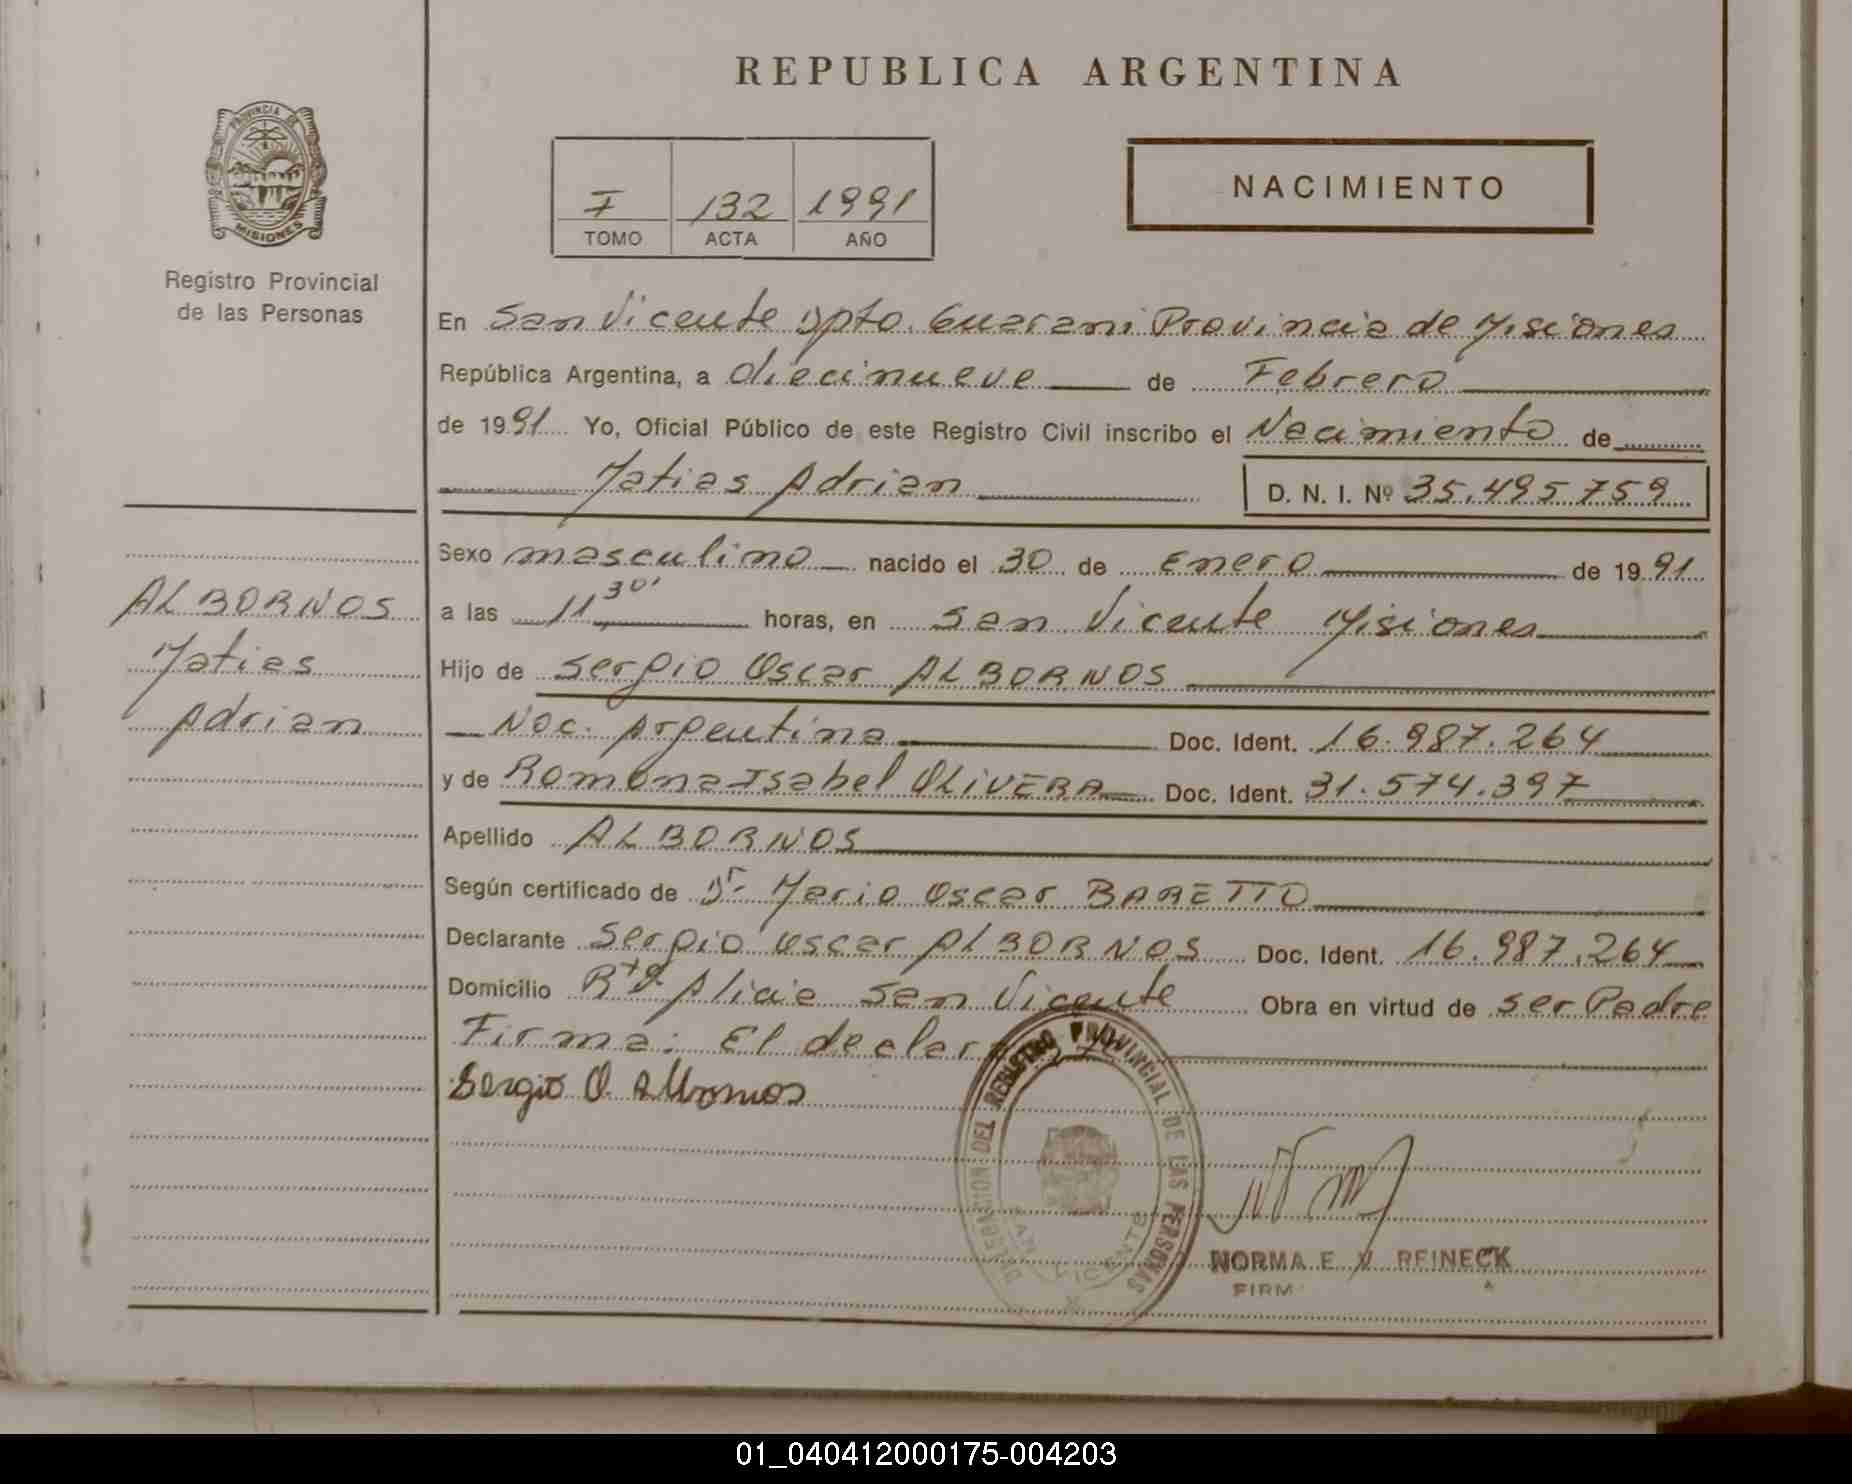 REPUBLICA ARGENTINA
PROVINCIA DE
MISIONES
Registro Provincial
de las Personas
I 132 1991
TOMO ACTA AÑO
NACIMIENTO
En San Vicente Dpto. Guarani Provincia de Misiones
República Argentina, a diecinueve de Febrero
de 1991 Yo, Oficial Público de este Registro Civil inscribo el Nacimiento de
Matias Adrian D. N. I. Nº 35.495759
ALBORNOS
Matias
Adrian
Sexo masculino nacido el 30 de Enero de 1991
a las 11,30' horas, en San Vicente Misiones
Hijo de Sergio Oscar ALBORNOS
Nac. Argentina Doc. Ident. 16.987.264
y de Romona Isabel OLIVERA Doc. Ident. 31.574.397
Apellido ALBORNOS
Según certificado de Dr. Mario Oscar BARETTO
Declarante Sergio Oscar ALBORNOS Doc. Ident. 16.987.264
Domicilio Alicia San Vicente Obra en virtud de ser Padre
Firma: El declar
Sergio O. Albornos
DELEGACION DEL REGISTRO PROVINCIAL DE LAS PERSONAS
SAN VICENTE
NORMA E. V. REINECK
FIRM
01_040412000175-004203